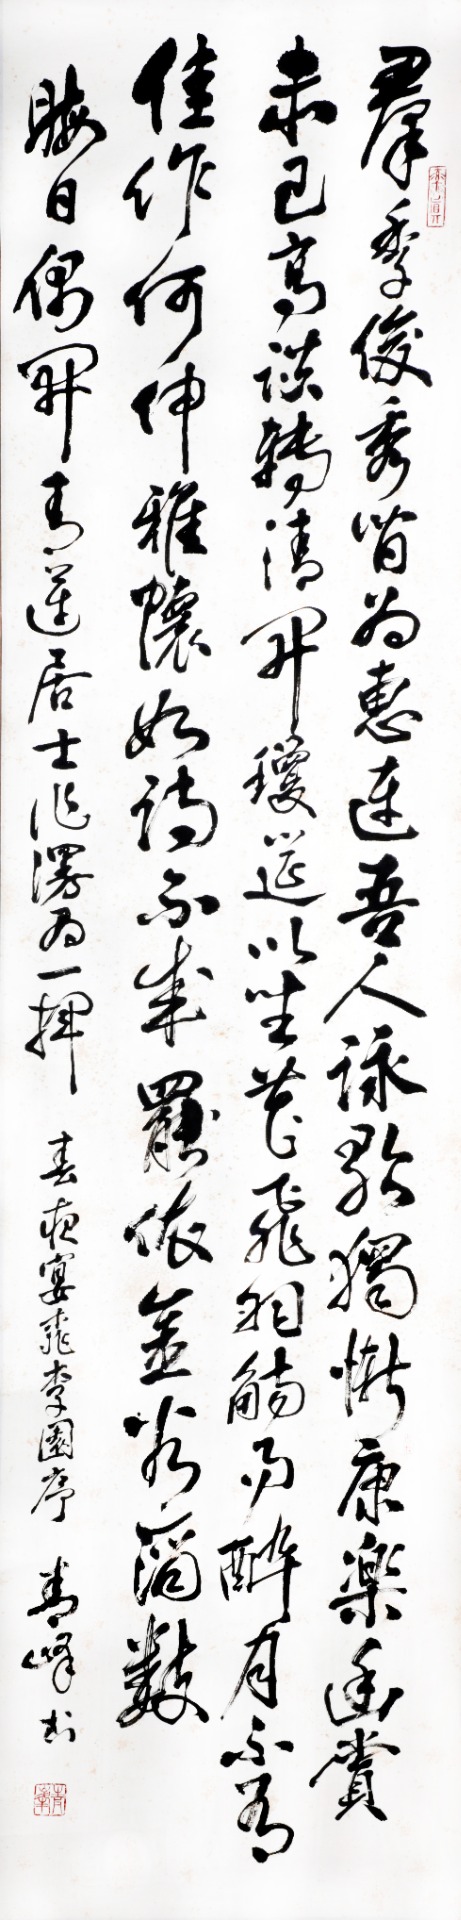 羣季俊秀皆為惠連吾人詠歌獨慚康樂幽賞
未已高談轉清開瓊筵以坐花飛羽觴而醉月不有
佳作何伸雅懷如詩不成罰依金谷酒數
晦日偶開青蓮居士作漫為一揮 春夜宴桃李園序 青峰书